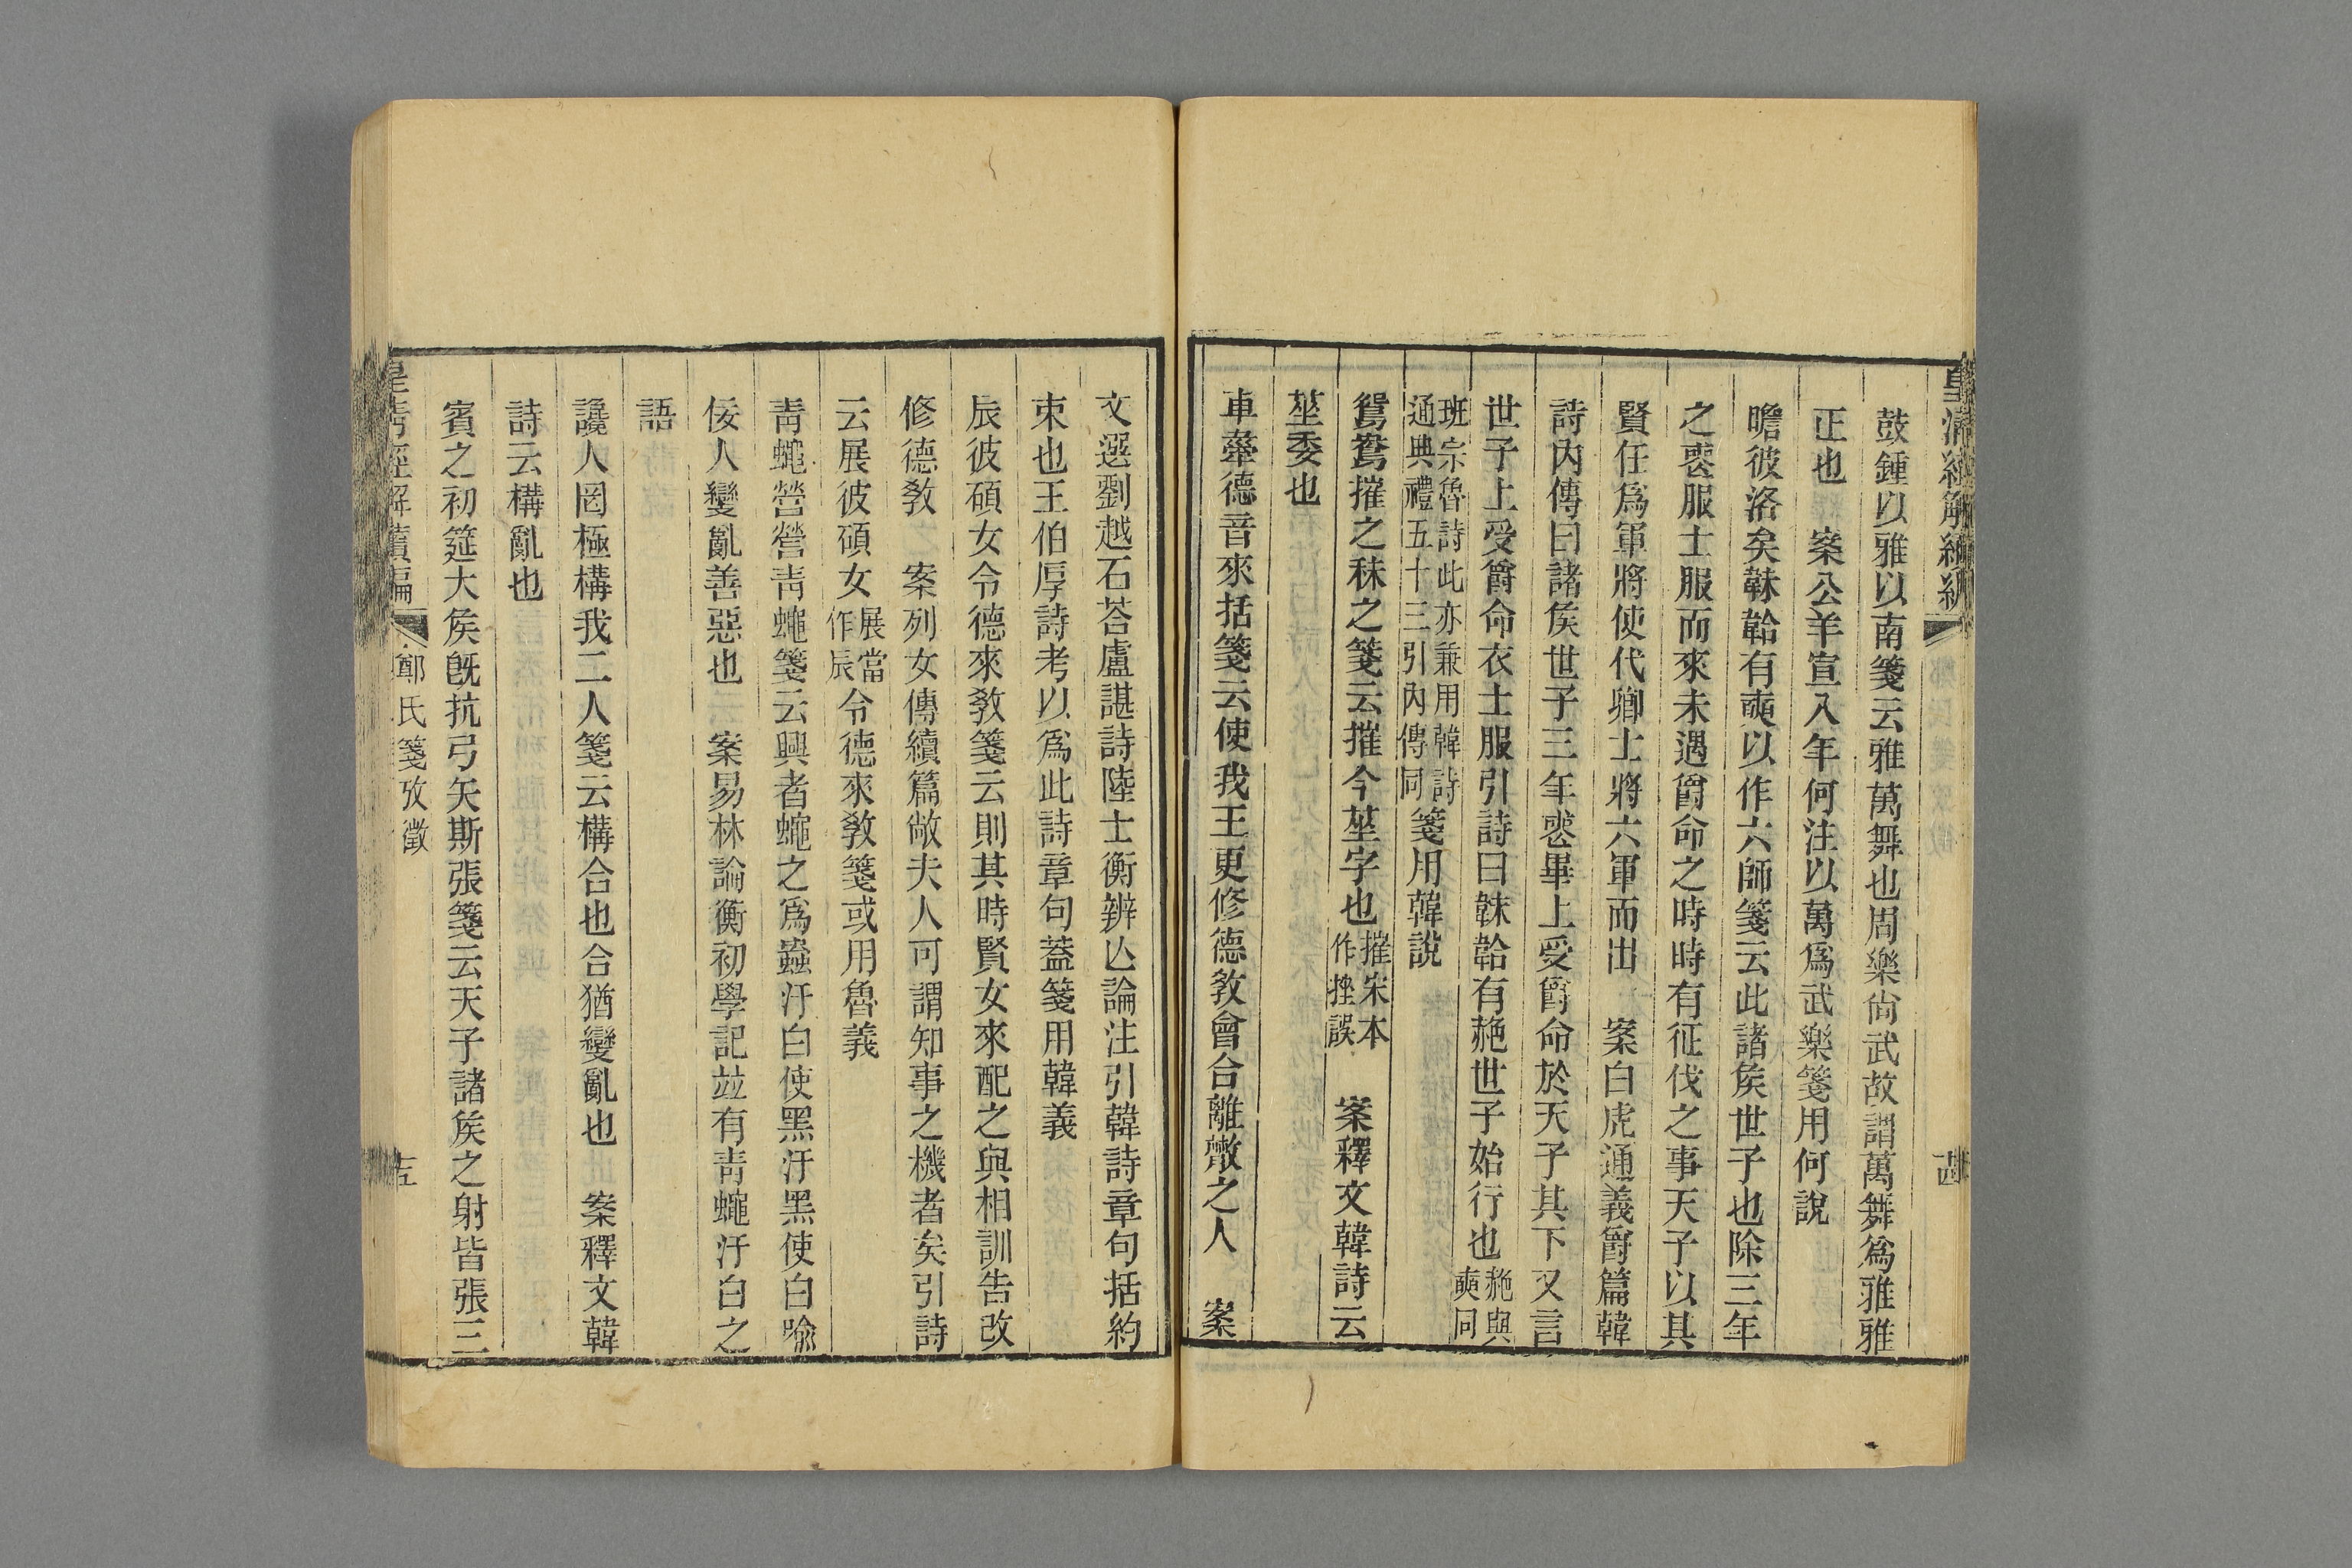 皇清經解續編
鼓鍾以雅以南箋云雅萬舞也周樂尙武故謂萬舞爲雅雅
正也　案公羊宣八年何注以萬爲武樂箋用何說
瞻彼洛矣韎韐有奭以作六師箋云此諸矦世子也除三年
之喪服士服而來未遇爵命之時時有征伐之事天子以其
賢任爲軍將使代卿士將六軍而出　案白虎通義爵篇韓
詩內傳曰諸矦世子三年喪畢上受爵命於天子其下又言
世子上受爵命衣士服引詩曰韎韐有赩世子始行也赩與奭同
班宗魯詩此亦兼用韓詩通典禮五十三引內傳同箋用韓說
鴛鴦摧之秣之箋云摧今莝字也摧宋本作挫誤　案釋文韓詩云
莝委也
車舝德音來括箋云使我王更修德敎會合離散之人　案
十四
文選劉越石荅盧諶詩陸士衡辨亾論注引韓詩章句括約
束也王伯厚詩考以爲此詩章句蓋箋用韓義
辰彼碩女令德來敎箋云則其時賢女來配之與相訓告改
修德敎　案列女傳續篇敞夫人可謂知事之機者矣引詩
云展彼碩女展當作辰令德來敎箋或用魯義
靑蠅營營靑蠅箋云興者蠅之爲蟲汙白使黑汙黑使白喩
佞人變亂善惡也　案易林論衡初學記竝有靑蠅汙白之
語
讒人罔極構我二人箋云構合也合猶變亂也　案釋文韓
詩云構亂也
賓之初筵大矦旣抗弓矢斯張箋云天子諸矦之射皆張三
皇淸經解續編
鄭氏箋攷徵
十五